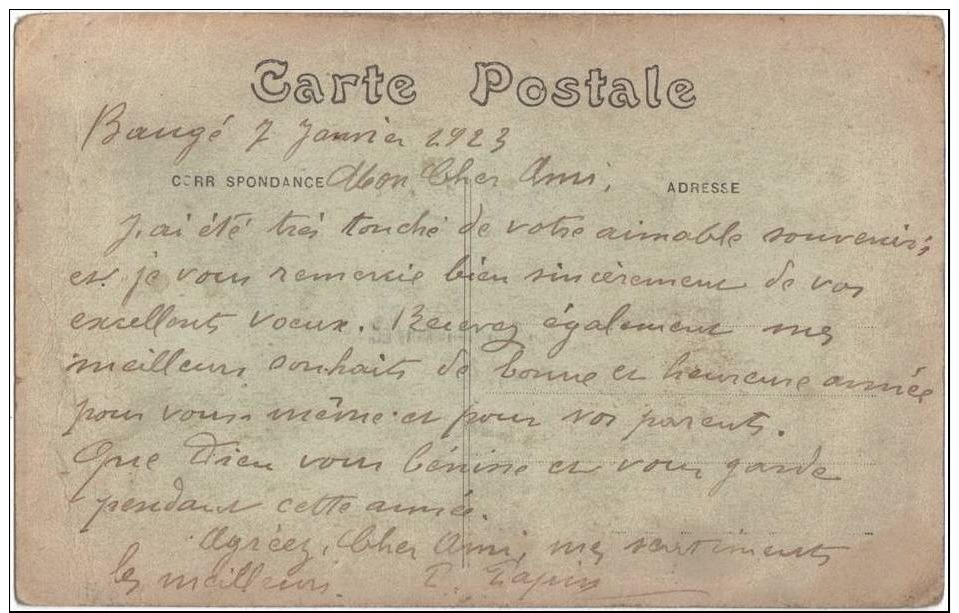 Carte Postale
Baugé 7 Janvier 1923
CORR SPONDANCE Mon Cher Ami, ADRESSE
J'ai été très touché de votre aimable souvenir,
et je vous remercie bien sincèrement de vos
excellents voeux. Recevez également mes
meilleurs souhaits de bonne et heureuse année
pour vous-même et pour vos parents.
Que Dieu vous bénisse et vous garde
pendant cette année.
Agréez, Cher Ami, mes sentiments
les meilleurs.